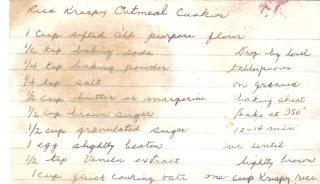 Rice Krispy Oatmeal Cookies
1 Cup sifted all purpose flour
1/2 tsp baking soda Drop by level
1/4 tsp baking powder tablespoons
1/4 tsp salt on greased
1/2 cup butter or margerine baking sheet
1/2 cup brown sugar Bake at 350°
1/2 cup granulated sugar 12-14 min
1 egg slightly beaten or until
1/2 tsp Vanila extract lightly brown
1 Cup quick cooking oats one cup Krispy rice